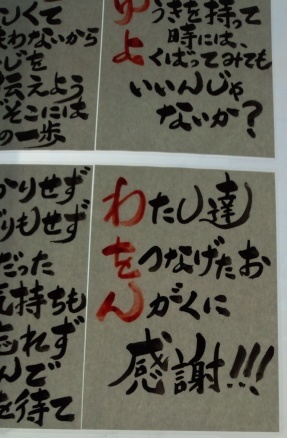 しくて
わないから
じを
伝えよう
そこには
の一歩
ゆうきを持って
時には、
よくばってみても
いいんじゃ
ないか?
かりせず
りもせず
だった
気持ちも
忘れず
んで
を待て
わたし達
をつなげたお
んがくに
感謝!!!